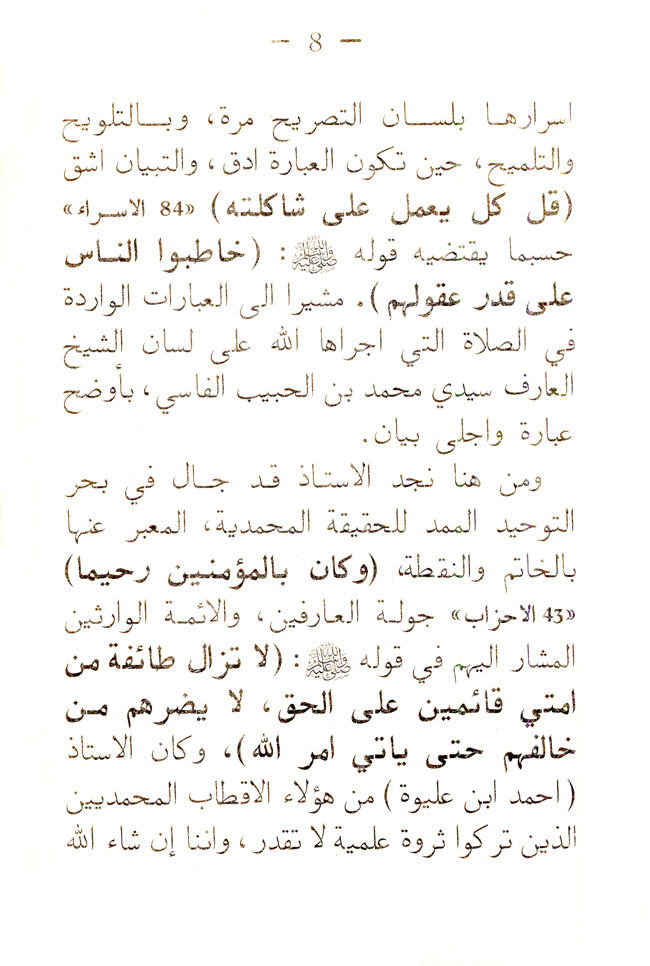 — 8 —
اسرارها بلسان التصريح مرة، وبالتلويح
والتلميح، حين تكون العبارة ادق، والتبيان اشق
(قل كل يعمل على شاكلته) «84 الاسراء»
حسبما يقتضيه قوله ﷺ : (خاطبوا الناس
على قدر عقولهم). مشيرا الى العبارات الواردة
في الصلاة التي اجراها الله على لسان الشيخ
العارف سيدي محمد بن الحبيب الفاسي، بأوضح
عبارة واجلى بيان.
ومن هنا نجد الاستاذ قد جال في بحر
التوحيد الممد للحقيقة المحمدية، المعبر عنها
بالخاتم والنقطة، (وكان بالمؤمنين رحيما)
«43 الاحزاب» جولة العارفين، والائمة الوارثين
المشار اليهم في قوله ﷺ : (لا تزال طائفة من
امتي قائمين على الحق، لا يضرهم من
خالفهم حتى ياتي امر الله)، وكان الاستاذ
(احمد ابن عليوة) من هؤلاء الاقطاب المحمديين
الذين تركوا ثروة علمية لا تقدر، واننا إن شاء الله